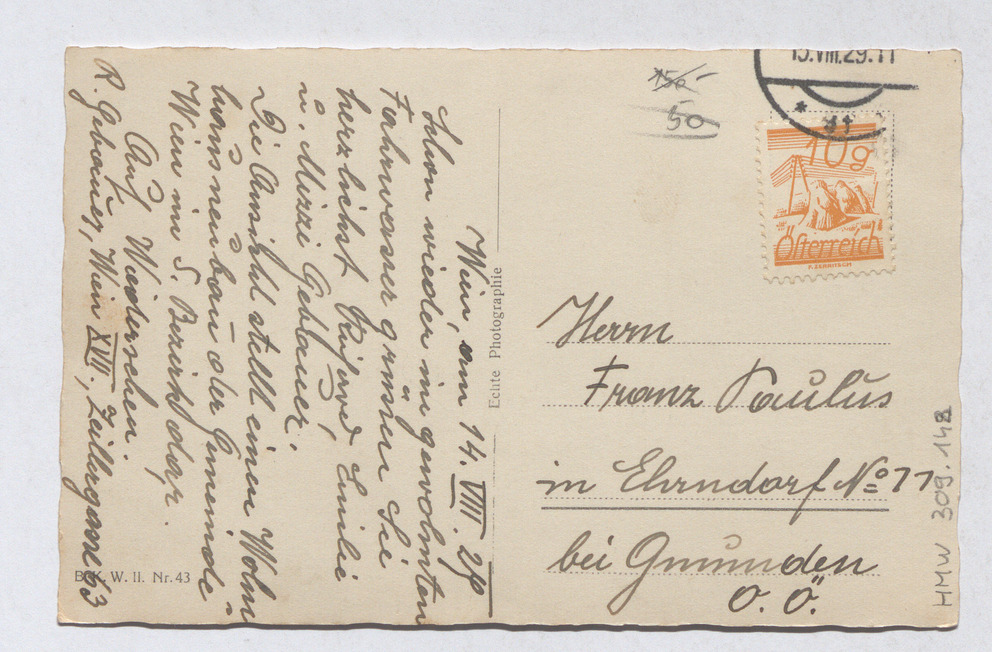 Wien, am 14. VIII. 29
Schon wieder im gewohnten
Fahrwasser grüssen Sie
herzlichst Richard, Emilie
u. Mizzi Gebauer.
Die Ansicht stellt einen Wohn-
hausneubau der Gemeinde
Wien im 5. Bezirk dar.
Auf Wiedersehen.
R. Gebauer, Wien XVII., Zeillergasse 63
B. K. W. II. Nr. 43
Echte Photographie
150
50
15.VIII.29.11
10g
Österreich
Herrn
Franz Paulus
in Ehrndorf No 77
bei Gmunden
O. Ö.
HMW 309.148